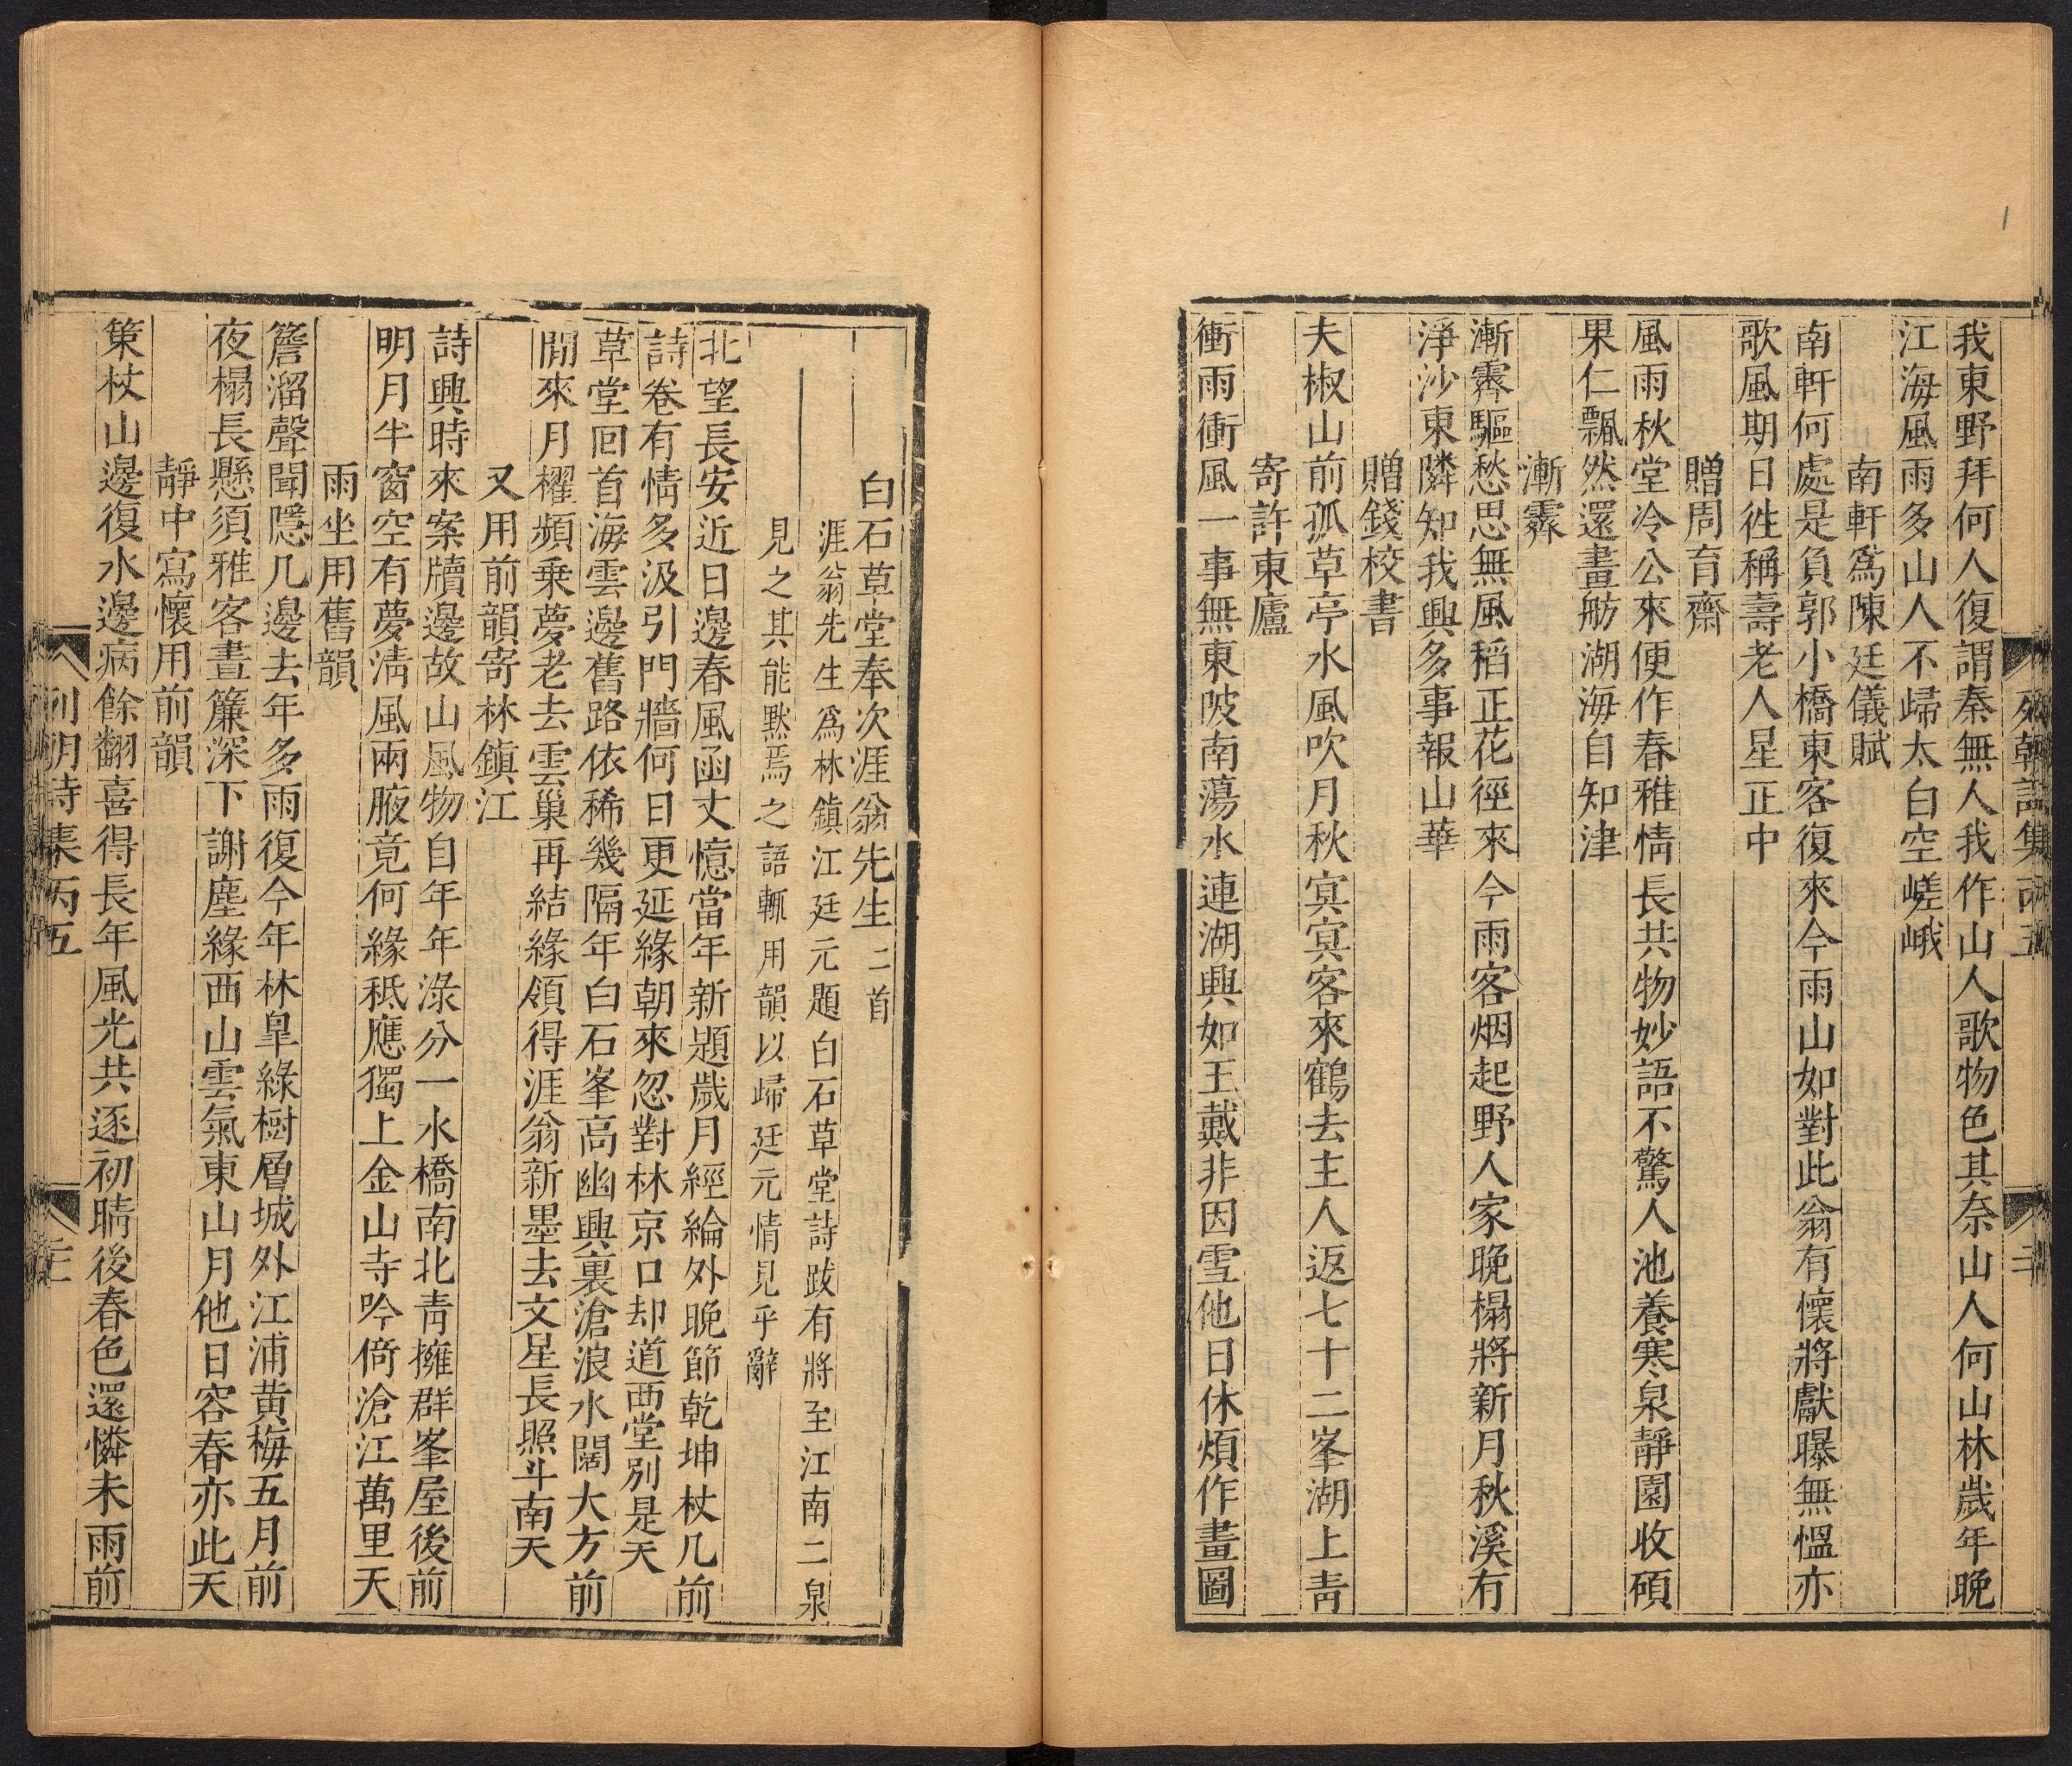 我東野拜何人復謂秦無人我作山人歌物色其奈山人何山林歲年晚
江海風雨多山人不歸太白空嵯峨
南軒爲陳廷儀賦
南軒何處是負郭小橋東客復來今雨山如對此翁有懷將獻曝無慍亦
歌風期日徃稱壽老人星正中
贈周育齋
風雨秋堂冷公來便作春雅情長共物妙語不驚人池養寒泉靜園收碩
果仁飄然還畫舫湖海自知津
漸霽
漸霽驅愁思無風稻正花徑來今雨客烟起野人家晚榻將新月秋溪有
淨沙東隣知我興多事報山華
贈錢校書
夫椒山前孤草亭水風吹月秋冥冥客來鶴去主人返七十二峯湖上靑
寄許東廬
衝雨衝風一事無東陂南蕩水連湖興如王戴非因雪他日休煩作畫圖
列朝詩集丙五
二
白石草堂奉次涯翁先生二首
涯翁先生爲林鎮江廷元題白石草堂詩跋有將至江南二泉
見之其能默焉之語輒用韻以歸廷元情見乎辭
北望長安近日邊春風函丈憶當年新題歲月經綸外晚節乾坤杖几前
詩卷有情多汲引門牆何日更延緣朝來忽對林京口却道西堂別是天
草堂回首海雲邊舊路依稀幾隔年白石峯高幽興裏滄浪水闊大方前
閒來月櫂頻乗夢老去雲巢再結緣領得涯翁新墨去文星長照斗南天
又用前韻寄林鎮江
詩興時來案牘邊故山風物自年年淥分一水橋南北靑擁群峯屋後前
明月半窗空有夢淸風兩腋竟何緣秪應獨上金山寺吟倚滄江萬里天
雨坐用舊韻
簷溜聲聞隱几邊去年多雨復今年林臯綠樹層城外江浦黄梅五月前
夜榻長懸須雅客晝簾深下謝塵緣西山雲氣東山月他日容春亦此天
靜中寫懷用前韻
策杖山邊復水邊病餘翻喜得長年風光共逐初晴後春色還憐未雨前
列朝詩集丙五
三